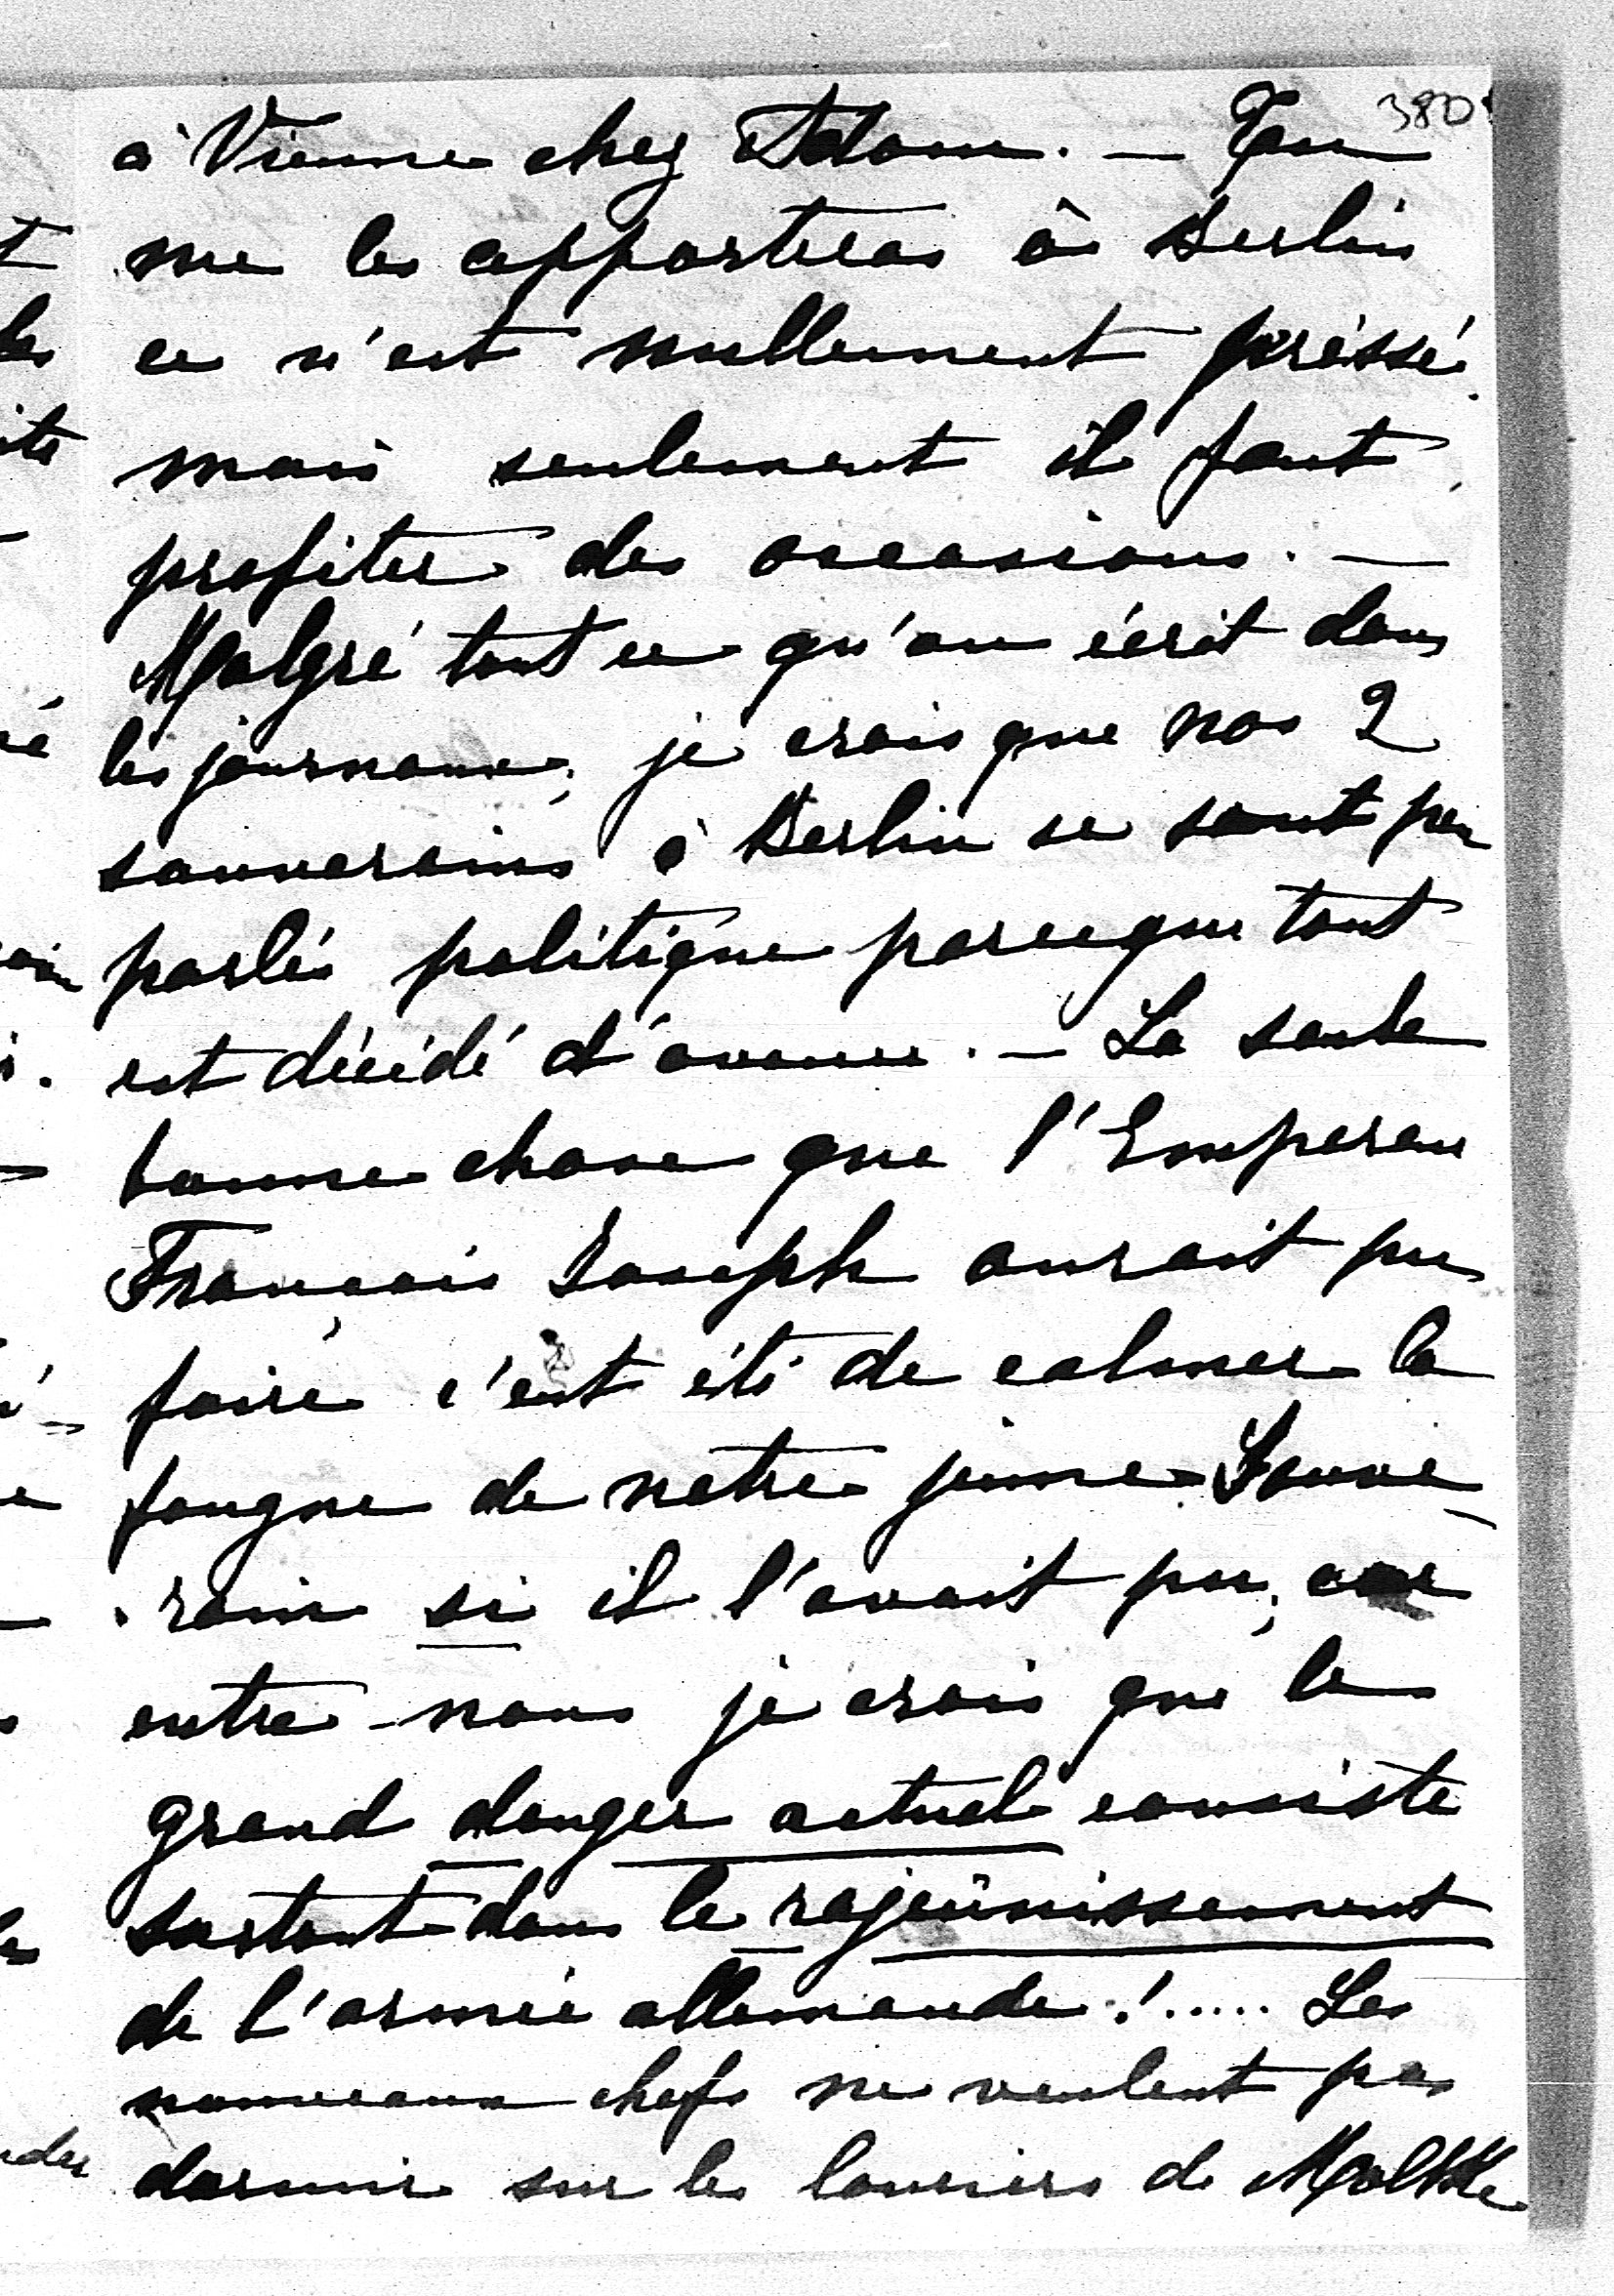 380
à Vienne chez Adam. — Tu
me les apporteras à Berlin
ce n'est nullement préssé
mais seulement il faut
profiter des occasions. —
Malgré tout ce qu'on écrit dans
les journaux, je crois que nos 2
souverains à Berlin se sont peu
parlés politique parceque tout
est décidé d'avance. — La seule
bonne chose que l'Empereur
François Joseph aurait pu
faire c'est été de calmer la
fougue de notre jeune Souve
-rain si il l'avait pu, car
entre-nous je crois que le
grand danger actuel consiste
surtout dans le rajeûnissement
de l'armée allemande!..... Les
nouveaux chefs ne veulent pas
dormir sur les louriers de Moltke